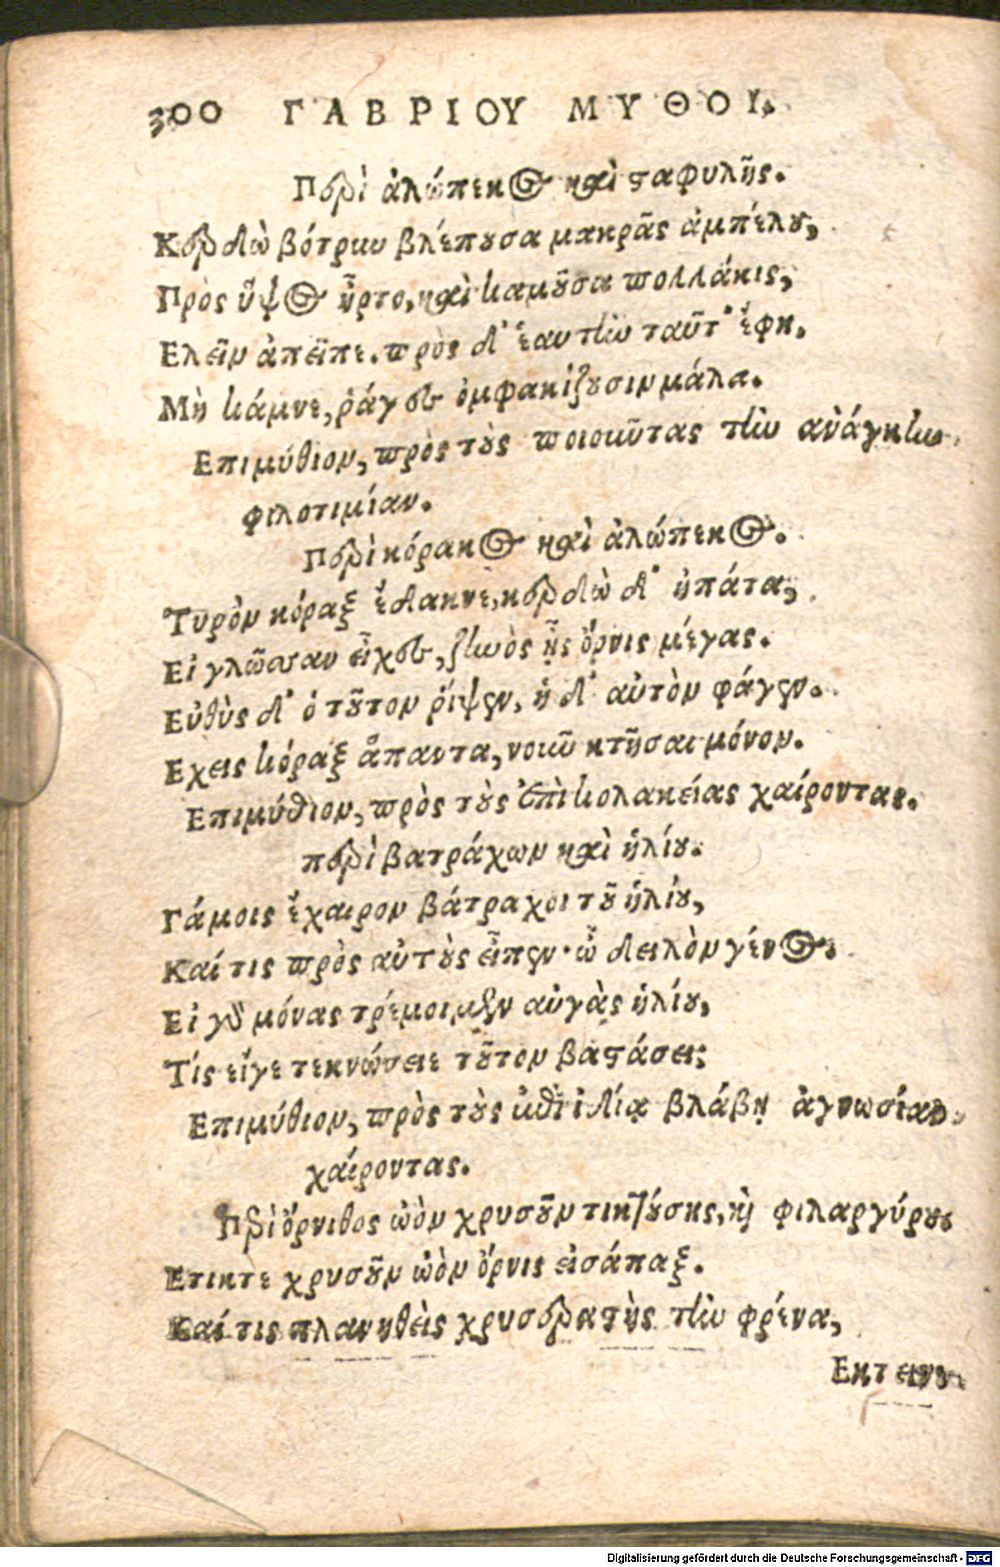 300 ΓΑΒΡΙΟΥ ΜΥΘΟΙ.
Περὶ ἀλώπεκος καὶ σταφυλῆς.
Κερδὼ βότρυν βλέπουσα μακρᾶς ἀμπέλου,
Πρὸς ὕψος ἦρτο, καὶ καμοῦσα πολλάκις,
Ελεῖν ἀπεῖπε. πρὸς δ' ἑαυτὴν ταῦτ' ἔφη.
Μὴ κάμνε, ῥάγες ὀμφακίζουσιν μάλα.
Επιμύθιον, πρὸς τοὺς ποιοῦντας τὴν ἀνάγκην
φιλοτιμίαν.
Περὶ κόρακος καὶ ἀλώπεκος.
Τυρὸν κόραξ ἔδακνε, κερδὼ δ' ἠπάτα,
Εἰ γλῶσσαν εἶχες, ζηνὸς ἦς ὄρνις μέγας.
Εὐθὺς δ' ὁ τοῦτον ῥίψεν, ἡ δ' αὐτὸν φάγεν.
Εχεις κόραξ ἅπαντα, νοῦν κτῆσαι μόνον.
Επιμύθιον, πρὸς τοὺς ἐπὶ κολακείας χαίροντας.
περὶ βατράχων καὶ ἡλίου.
Γάμοις ἔχαιρον βάτραχοι τοῦ ἡλίου,
Καί τις πρὸς αὐτοὺς εἶπεν· ὦ δειλὸν γένος.
Εἰ γὰρ μόνας τρέμοιμεν αὐγὰς ἡλίου,
Τίς εἴγε τεκνώσειε τοῦτον βαστάσει;
Επιμύθιον, πρὸς τοὺς ἐπὶ ἰδίᾳ βλάβῃ ἀγνωσίαν
χαίροντας.
Περὶ ὄρνιθος ὠὸν χρυσοῦν τικτούσης, καὶ φιλαργύρου
Ετικτε χρυσοῦν ὠὸν ὄρνις εἰσάπαξ.
Καί τις πλανηθεὶς χρυσεραστὴς τὴν φρένα,
Εκτεινε
Digitalisierung gefördert durch die Deutsche Forschungsgemeinschaft - DFG